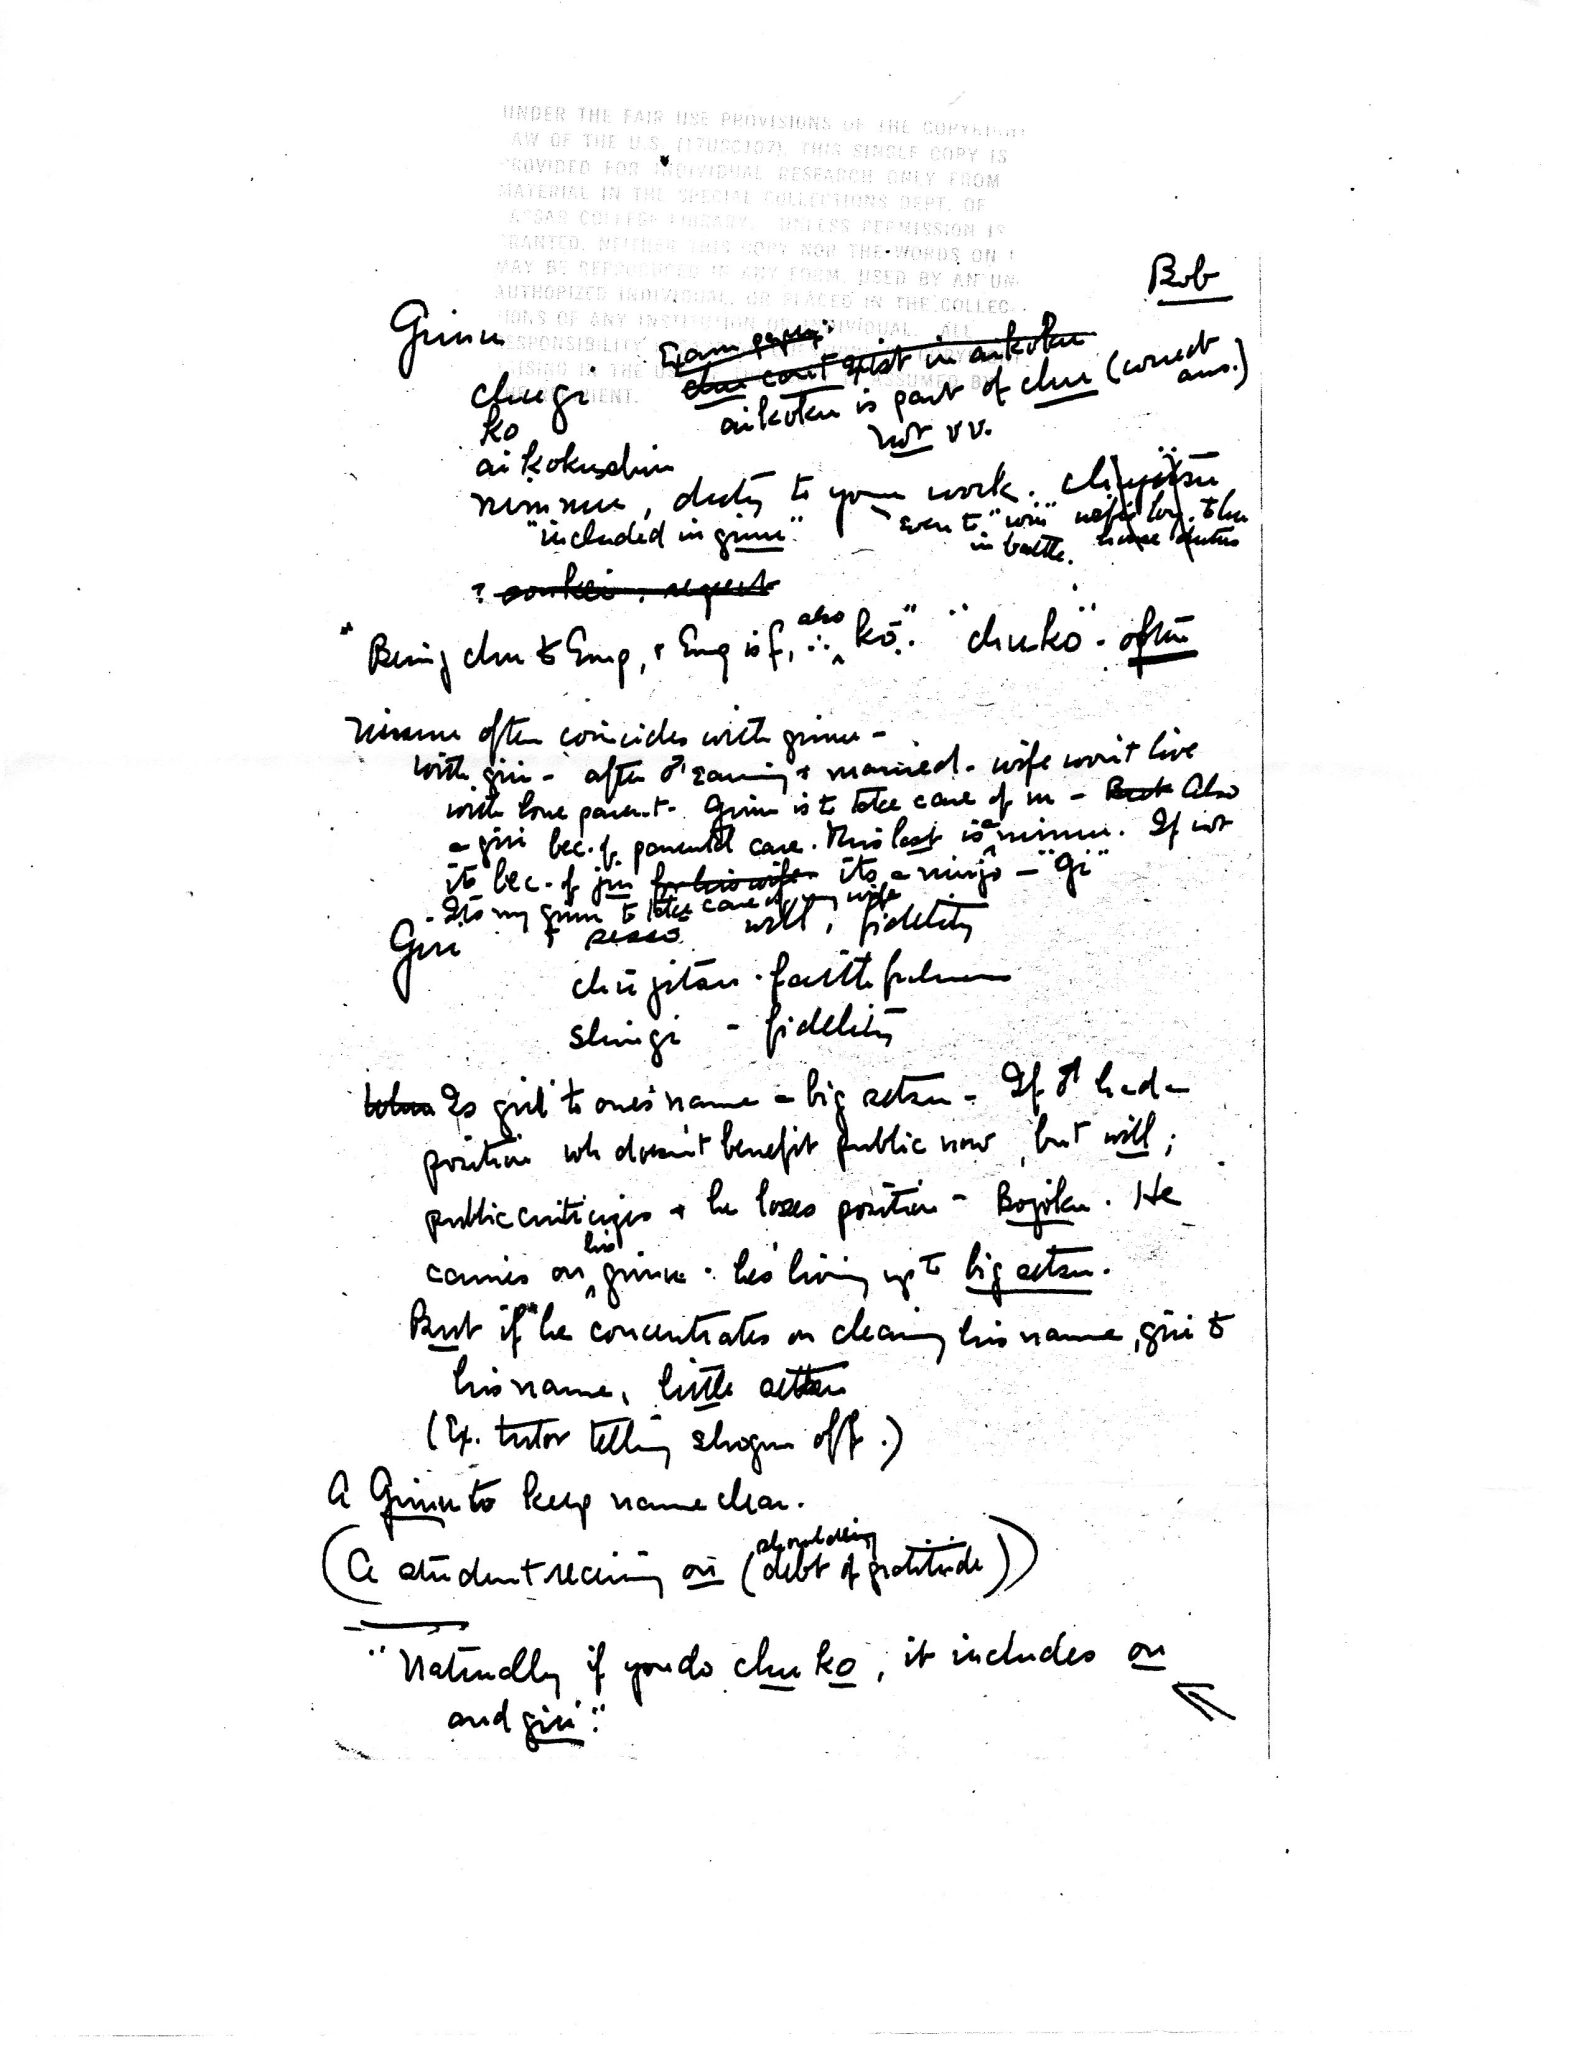 UNDER THE FAIR USE PROVISIONS OF THE COPYRIGHT
AW OF THE U.S. (17USC107), THIS SINGLE COPY IS
PROVIDED FOR INDIVIDUAL RESEARCH ONLY FROM
MATERIAL IN THE SPECIAL COLLECTIONS DEPT. OF
ASSAR COLLEGE LIBRARY. UNLESS PERMISSION IS
GRANTED, NEITHER THIS COPY NOR THE WORDS ON I
MAY BE REPRODUCED IN ANY FORM, USED BY AN UN-
AUTHORIZED INDIVIDUAL, OR PLACED IN THE COLLEC-
TIONS OF ANY INSTITUTION OR INDIVIDUAL. ALL
Bob
Gimu
Exam paper:
chu can't exist in aikoku
chugi
aikoku is part of chu (correct ans.)
ko
not vv.
aikokushin
nimmu, duty to your work. chujitsu
"included in gimu".
even to "win" in battle.
? sonkei, respect
"Being chu to Emp, + Emp is f, ∴ also kō". "chuko" - often
nimmu often coincides with gimu -
with giri - after ♂ earning + married - wife won't live
with lone parent. Gimu is to take care of m - But Also
a giri bec. of parental care. This last is a nimmu. If not
its bec. of jin for his wife its a ninjo - "Gi"
- Its my gimu to take care of my wife
Giri + sesso will, fidelity
chūjitsu - faithfulness
shingi - fidelity
When Is giri to one's name a big setsu - If ♂ had a
position wh doesn't benefit public now, but will;
public criticizes + he loses position - Bojoku. He
carries on his gimu - he's living up to big setsu.
But if he concentrates on clearing his name, giri to
his name, little setsu
(Ex. tutor telling shogun off.)
A Gimu to keep name clear.
(A student receiving on (shouldering debt of gratitude))
"Naturally if you do chu ko, it includes on
and giri".